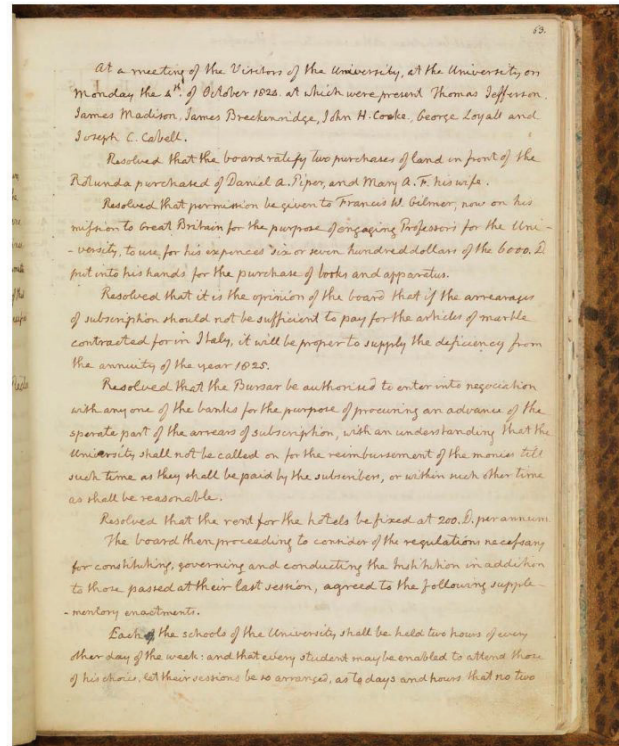 63.
At a meeting of the Visitors of the University, at the University on
Monday the 4th of October 1824. at which were present Thomas Jefferson,
James Madison, James Breckenridge, John H. Cocke, George Loyall and
Joseph C. Cabell.
Resolved that the board ratify two purchases of land in front of the
Rotunda purchased of Daniel A. Piper, and Mary A. F. his wife.
Resolved that permission be given to Francis W. Gilmer, now on his
mission to Great Britain for the purpose of engaging Professors for the Uni-
-versity, to use, for his expences six or seven hundred dollars of the 6000. D.
put into his hands for the purchase of books and apparatus.
Resolved that it is the opinion of the board that if the arrearages
of subscription should not be sufficient to pay for the articles of marble
contracted for in Italy, it will be proper to supply the deficiency from
the annuity of the year 1825.
Resolved that the Bursar be authorised to enter into negociation
with any one of the banks for the purpose of procuring an advance of the
sperate part of the arrears of subscription, with an understanding that the
University shall not be called on for the reimbursement of the monies till
such time as they shall be paid by the subscribers, or within such other time
as shall be reasonable.
Resolved that the rent for the hotels be fixed at 200. D. per annum
The board then proceeding to consider of the regulations necessary
for constituting, governing and conducting the Institution in addition
to those passed at their last session, agreed to the following supple-
-mentory enactments.
Each of the schools of the University shall be held two hours of every
other day of the week: and that every student may be enabled to attend those
of his choice, let their sessions be so arranged, as to days and hours that no two